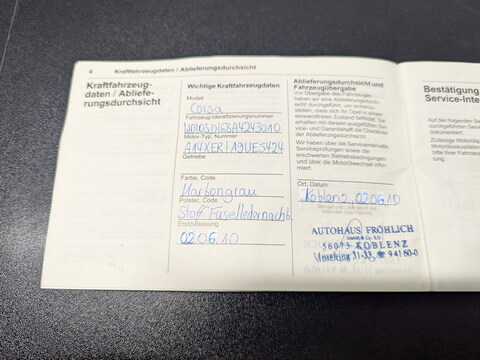 4 Kraftfahrzeugdaten / Ablieferungsdurchsicht
Kraftfahrzeug-
daten / Abliefe-
rungsdurchsicht
Wichtige Kraftfahrzeugdaten
Modell
Corsa
Fahrzeug-Identifizierungsnummer
Motor-Typ, Nummer
A14XER/19UE5424
Getriebe
Farbe, Code
Polster, Code
Stoff
Erstzulassung
02.06.10
Ablieferungsdurchsicht und
Fahrzeugübergabe
Vor Übergabe des Fahrzeuges
haben wir eine Ablieferungsdurch-
sicht durchgeführt, um sicherzu-
stellen, dass sich Ihr Opel in einem
einwandfreien Zustand befindet. Sie
erhalten mit diesem ausgefüllten Ser-
vice- und Garantieheft die Checkliste
der Ablieferungsdurchsicht.
Wir haben über die Serviceintervalle,
Serviceprüfungen sowie die
erschwerten Betriebsbedingungen
und über die Motorölwechsel infor-
miert.
Ort, Datum
Koblenz, 02.06.10
AUTOHAUS FRÖHLICH
GmbH & Co. KG
56073 KOBLENZ
Moselring 31-33, ☎ 94160-0
Bestätigung
Service-Inte
Auf den folgenden Se
dokumentiert.
Zulässige Motoröl
bitte Ihrer Fahrzeu